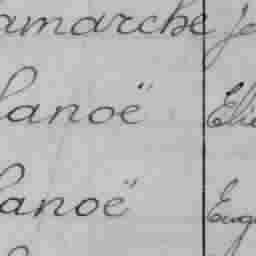 amarche
lanoë Elie
lanoë Eug